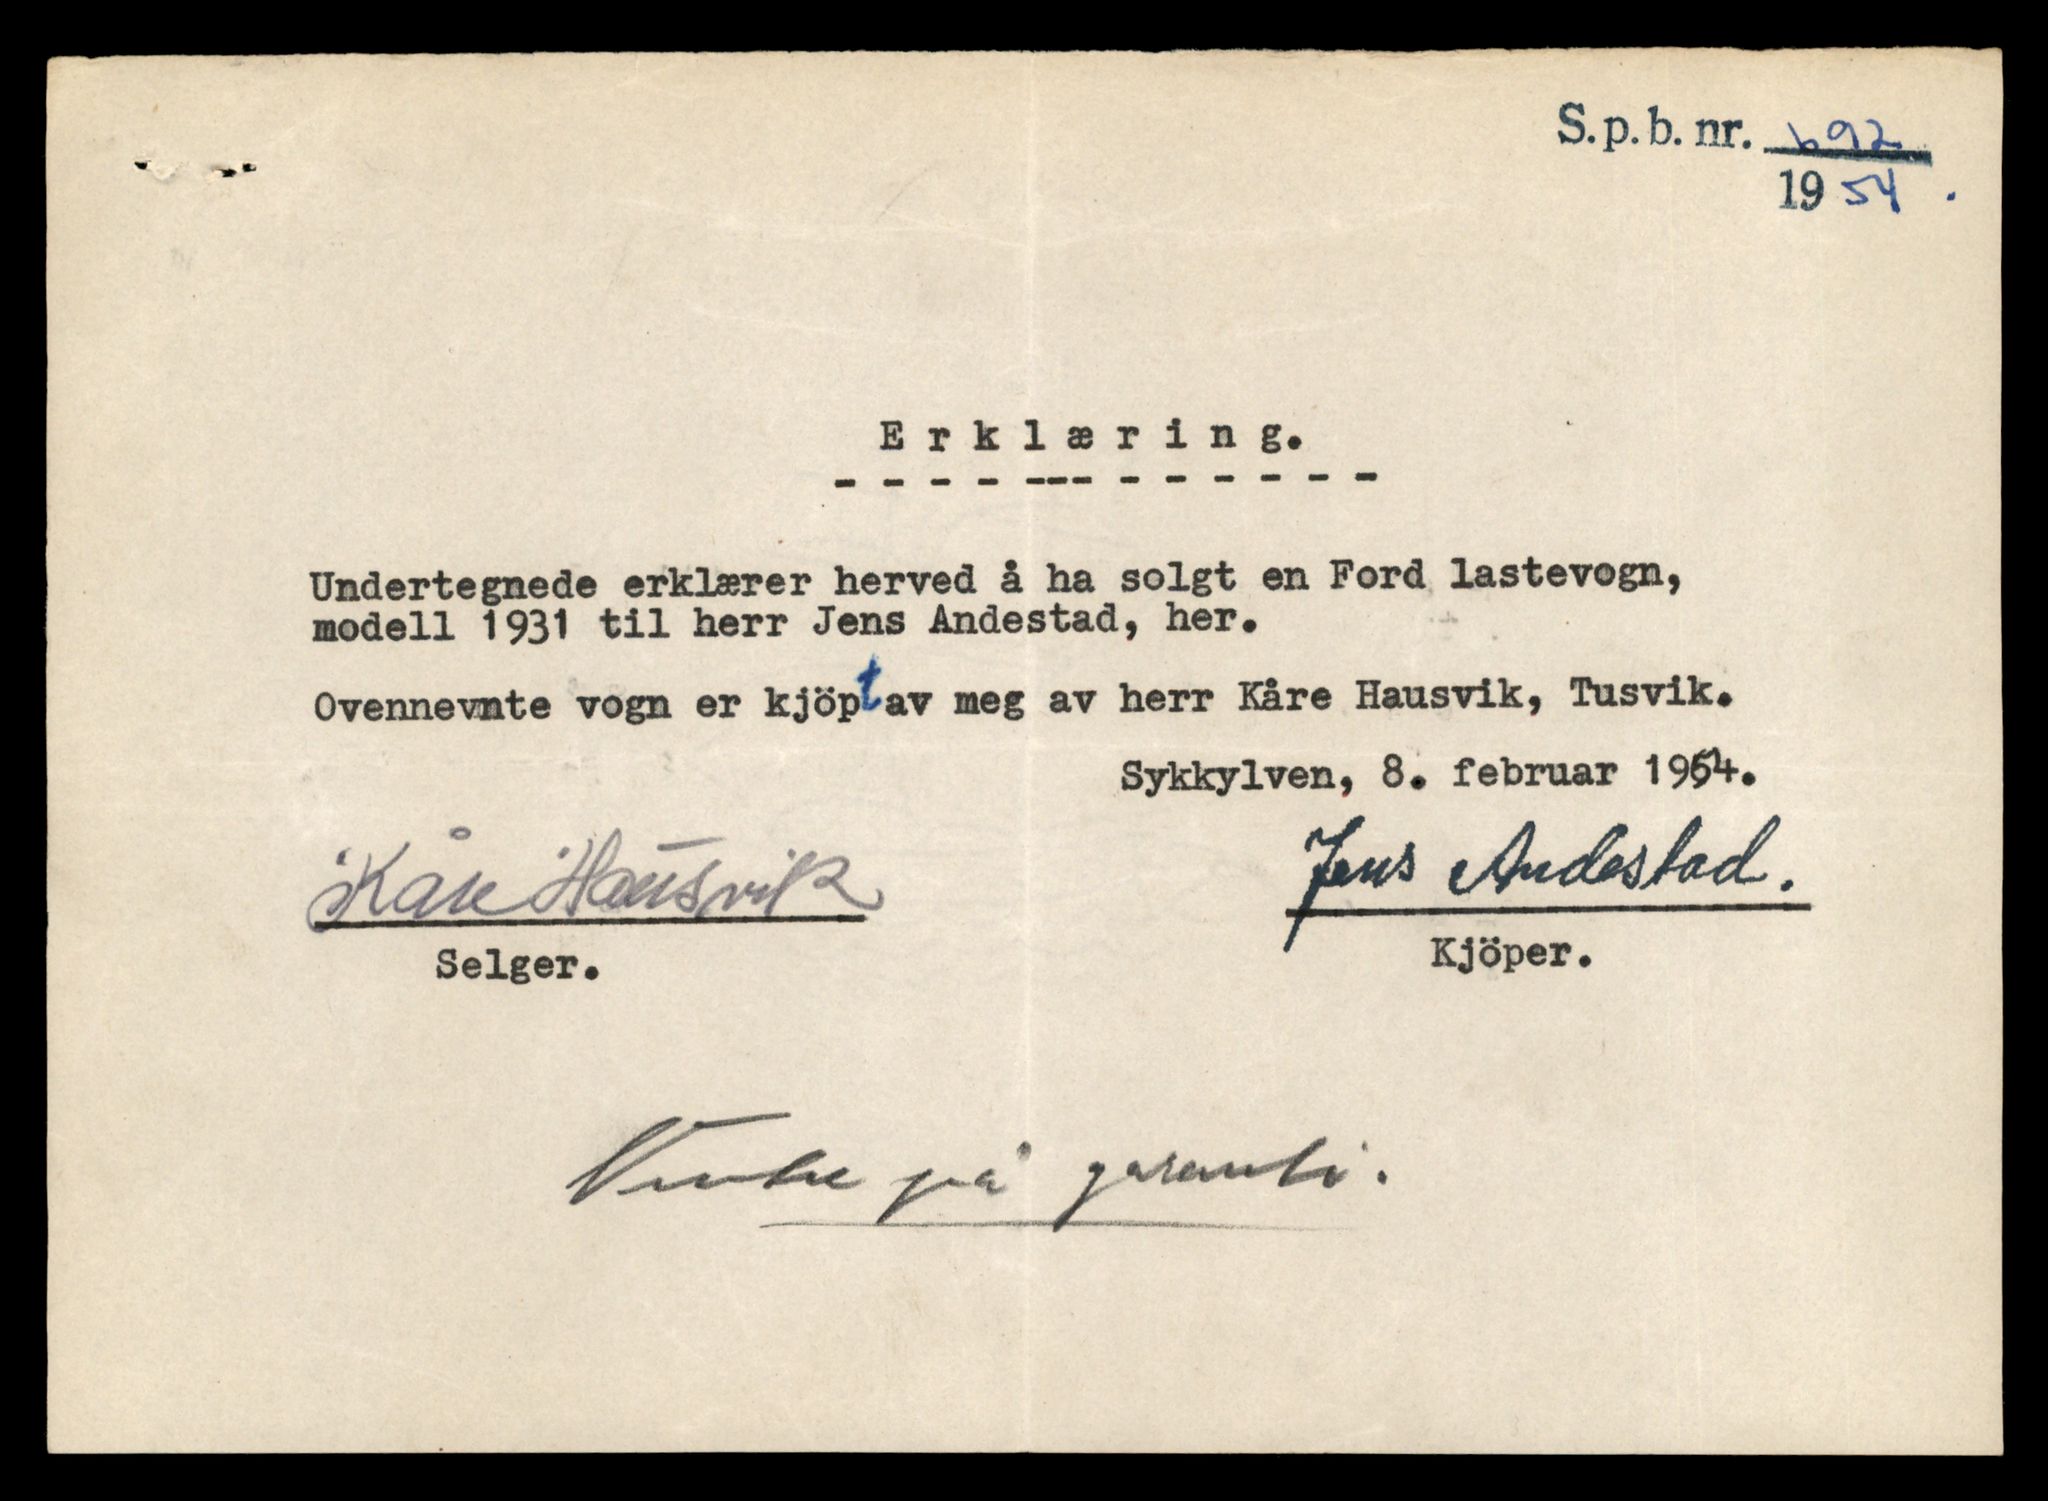 S.p.b. nr. 692
1954.
Erklæring.
- - - - --- - - - - - -
Undertegnede erklærer herved å ha solgt en Ford lastevogn,
modell 1931 til herr Jens Andestad, her.
Ovennevnte vogn er kjöpt av meg av herr Kåre Hausvik, Tusvik.
Sykkylven, 8. februar 1954.
Kåre Hausvik
Jens Andestad.
Selger.
Kjöper.
Vente på garanti.